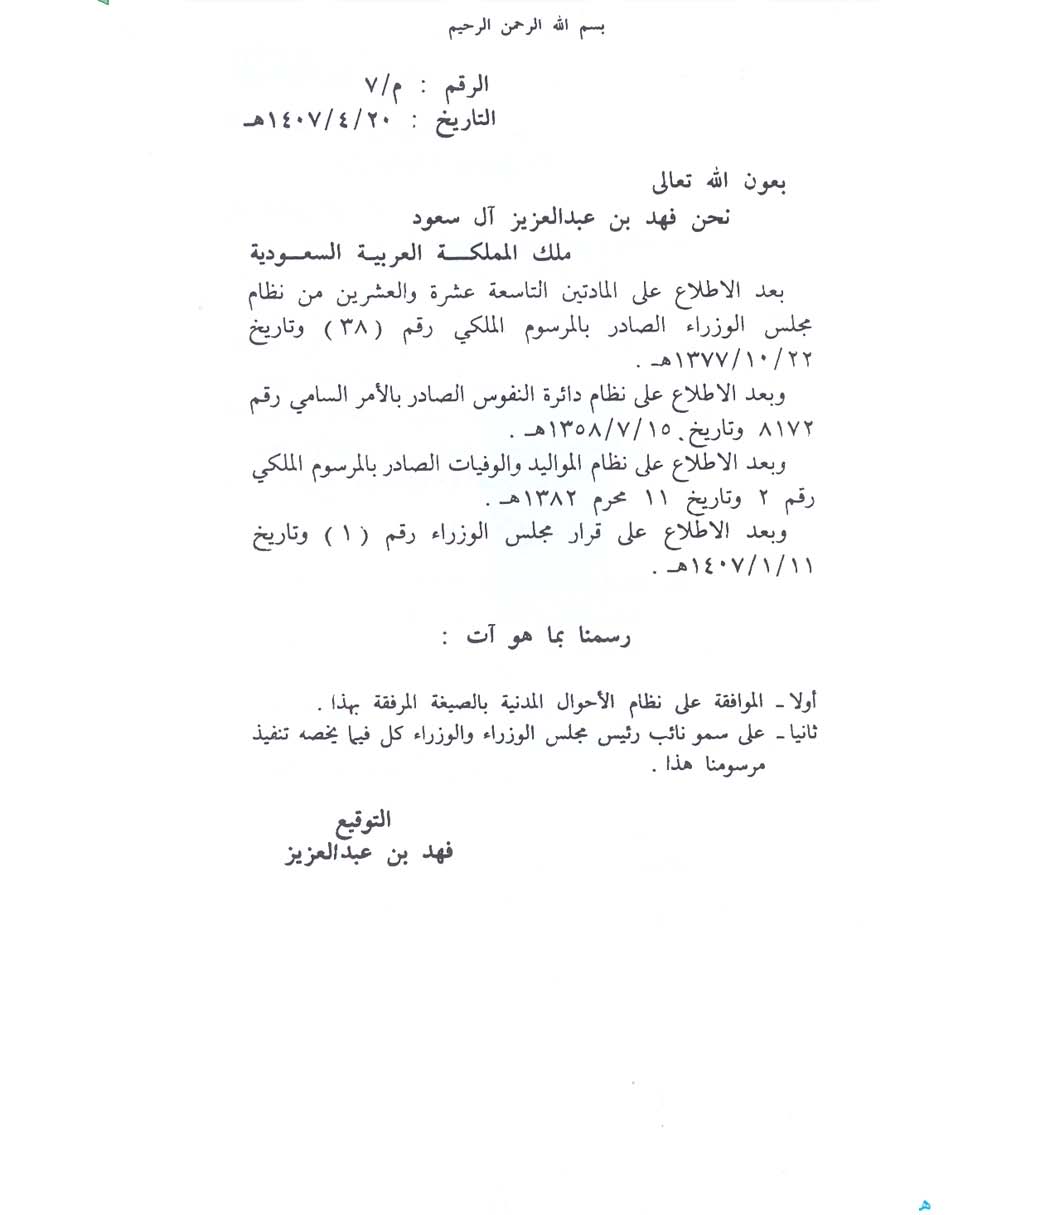 بسم الله الرحمن الرحيم
الرقم : م/٧
التاريخ : ١٤٠٧/٤/٢٠هـ
بعون الله تعالى
نحن فهد بن عبدالعزيز آل سعود
ملك المملكـــة العربيـة السعـودية
بعد الاطلاع على المادتين التاسعة عشرة والعشرين من نظام
مجلس الوزراء الصادر بالمرسوم الملكي رقم (٣٨) وتاريخ
١٣٧٧/١٠/٢٢هـ .
وبعد الاطلاع على نظام دائرة النفوس الصادر بالأمر السامي رقم
٨١٧٢ وتاريخ ١٣٥٨/٧/١٥هـ .
وبعد الاطلاع على نظام المواليد والوفيات الصادر بالمرسوم الملكي
رقم ٢ وتاريخ ١١ محرم ١٣٨٢هـ .
وبعد الاطلاع على قرار مجلس الوزراء رقم (١) وتاريخ
١٤٠٧/١/١١هـ .
رسمنا بما هو آت :
أولا ـ الموافقة على نظام الأحوال المدنية بالصيغة المرفقة بهذا .
ثانيا ـ على سمو نائب رئيس مجلس الوزراء والوزراء كل فيما يخصه تنفيذ
مرسومنا هذا .
التوقيع
فهد بن عبدالعزيز
هـ